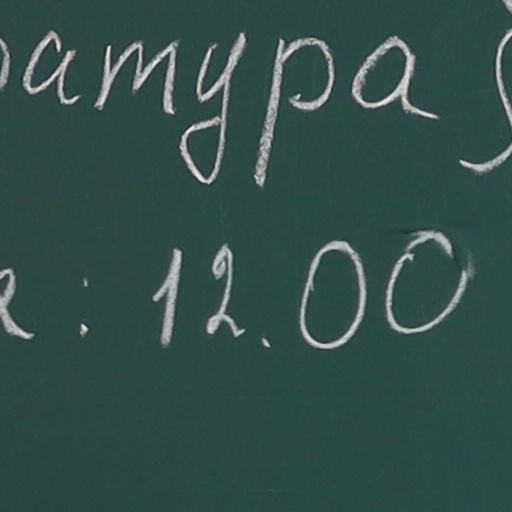 ратура
: 12.00